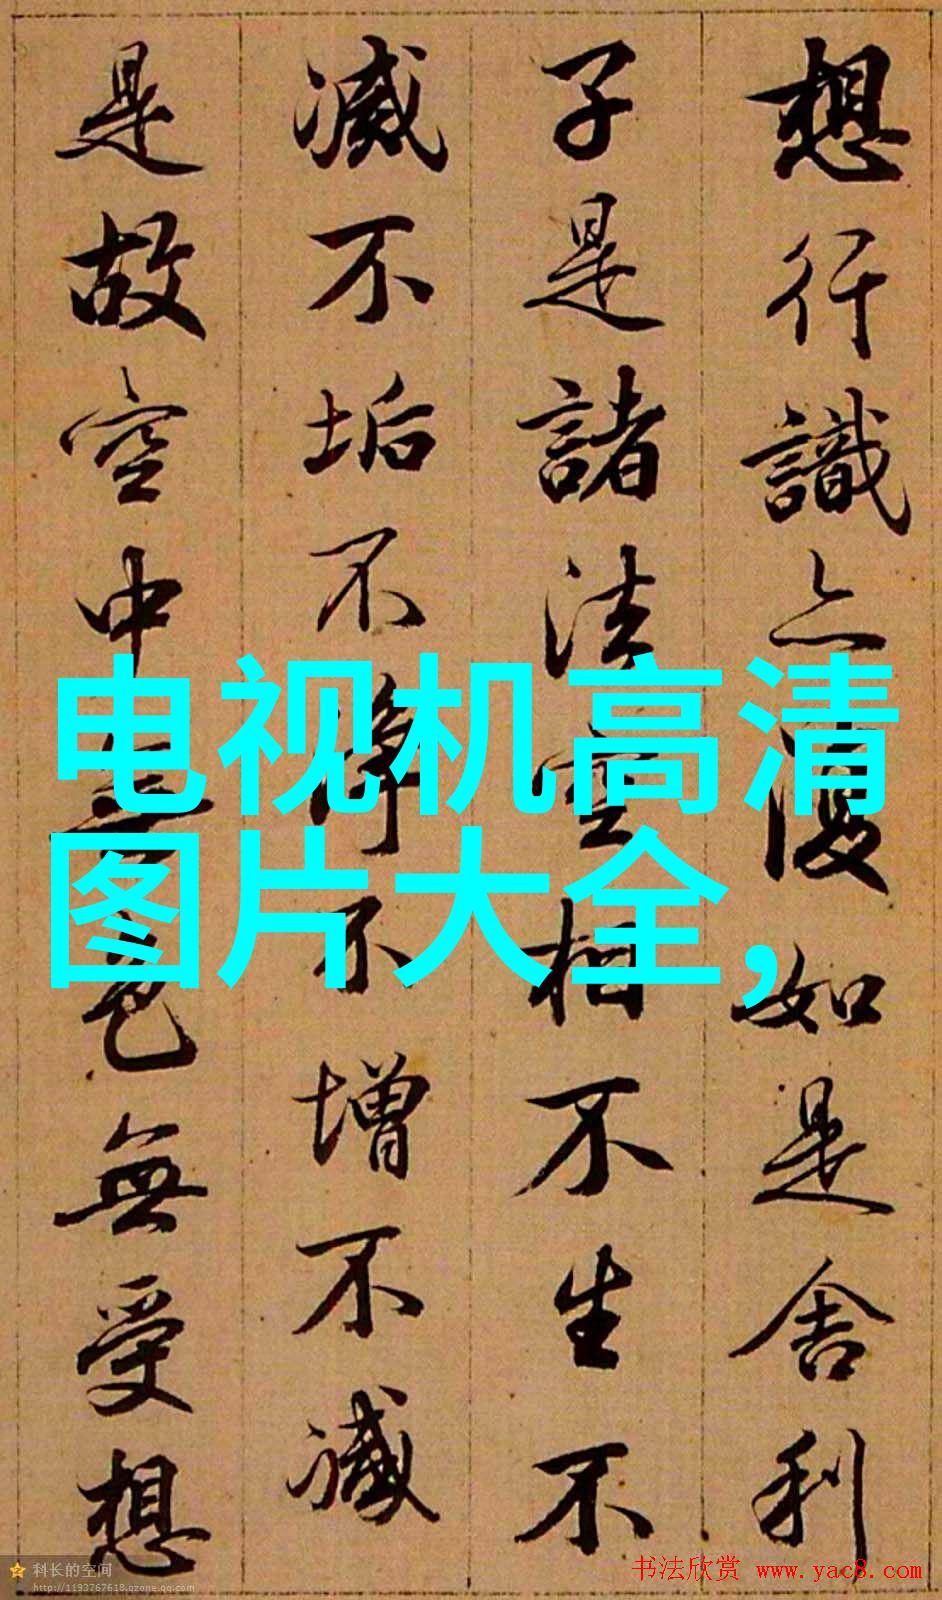 想行識亦復如是舍利
子是諸法空相不生不
滅不垢不淨不增不減
是故空中無色無受想
电视机高清
图片大全，
科长的空间
http://1193767618.qzone.qq.com
书法欣赏 www.yac8.com